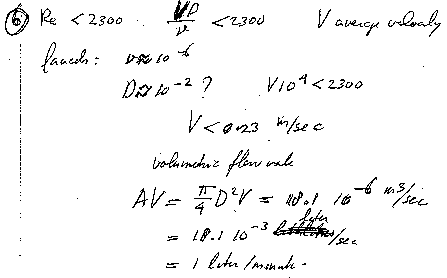 ⑥ Re < 2300 VD/ν < 2300 V average velocity
faucets: ν ≈ 10^-6
D ≈ 10^-2 ? V 10^4 < 2300
V < 0.23 m/sec
volumetric flow rate
AV = π/4 D²V = 18.1 10^-6 m³/sec
= 18.1 10^-3 liter/sec
= 1 liter/minute.